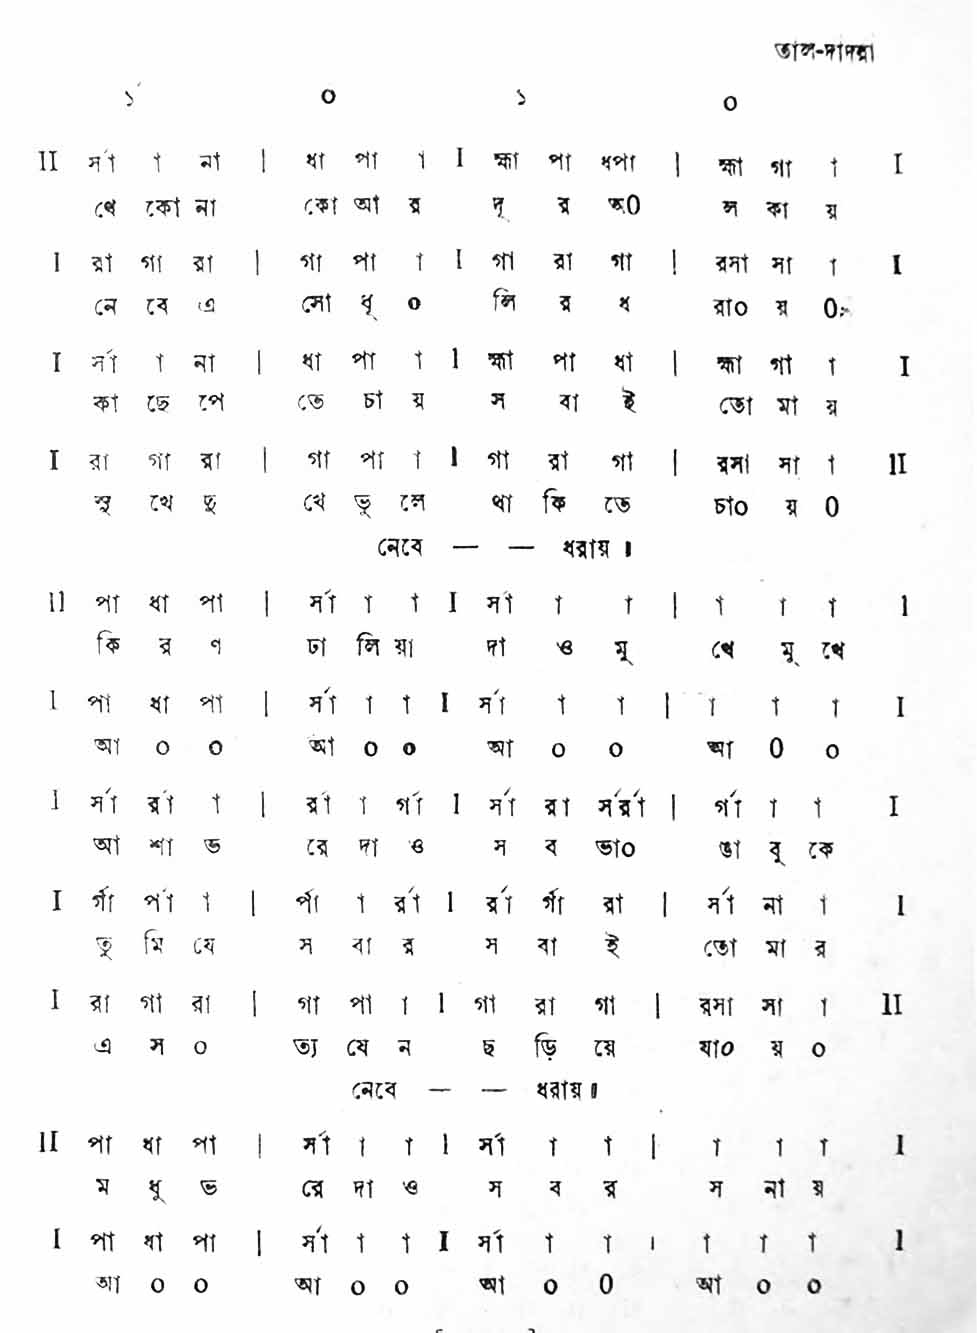 তাল-দাদরা
১´ ০ ১ ০
II র্সা া না | ধা পা া I হ্মা পা ধপা | হ্মা গা া I
থে কো না কো আ র দূ র অ০ ল কা য়
I রা গা রা | গা পা া I গা রা গা | রসা সা া I
নে বে এ সো ধূ ০ লি র ধ রা০ য় ০
I র্সা া না | ধা পা া I হ্মা পা ধা | হ্মা গা া I
কা ছে পে তে চা য় স বা ই তো মা য়
I রা গা রা | গা পা া I গা রা গা | রসা সা া II
সু খে দু খে ভু লে থা কি তে চা০ য় ০
নেবে — — ধরায় ৷
II পা ধা পা | র্সা া া I র্সা া া | া া া I
কি র ণ ঢা লি য়া দা ও মু খে মু খে
I পা ধা পা | র্সা া া I র্সা া া | া া া I
আ ০ ০ আ ০ ০ আ ০ ০ আ ০ ০
I র্সা র্রা া | র্রা া র্গা I র্সা রা র্সর্রা | র্গা া া I
আ শা ভ রে দা ও স ব ভা০ ঙা বু কে
I র্গা র্পা া | র্পা া র্রা I র্রা র্গা রা | র্সা না া I
তু মি যে স বা র স বা ই তো মা র
I রা গা রা | গা পা া I গা রা গা | রসা সা া II
এ স ০ ত্য যে ন ছ ড়ি য়ে যা০ য় ০
নেবে — — ধরায় ৷
II পা ধা পা | র্সা া া I র্সা া া | া া া I
ম ধু ভ রে দা ও স ব র স না য়
I পা ধা পা | র্সা া া I র্সা া া । া া া I
আ ০ ০ আ ০ ০ আ ০ ০ আ ০ ০